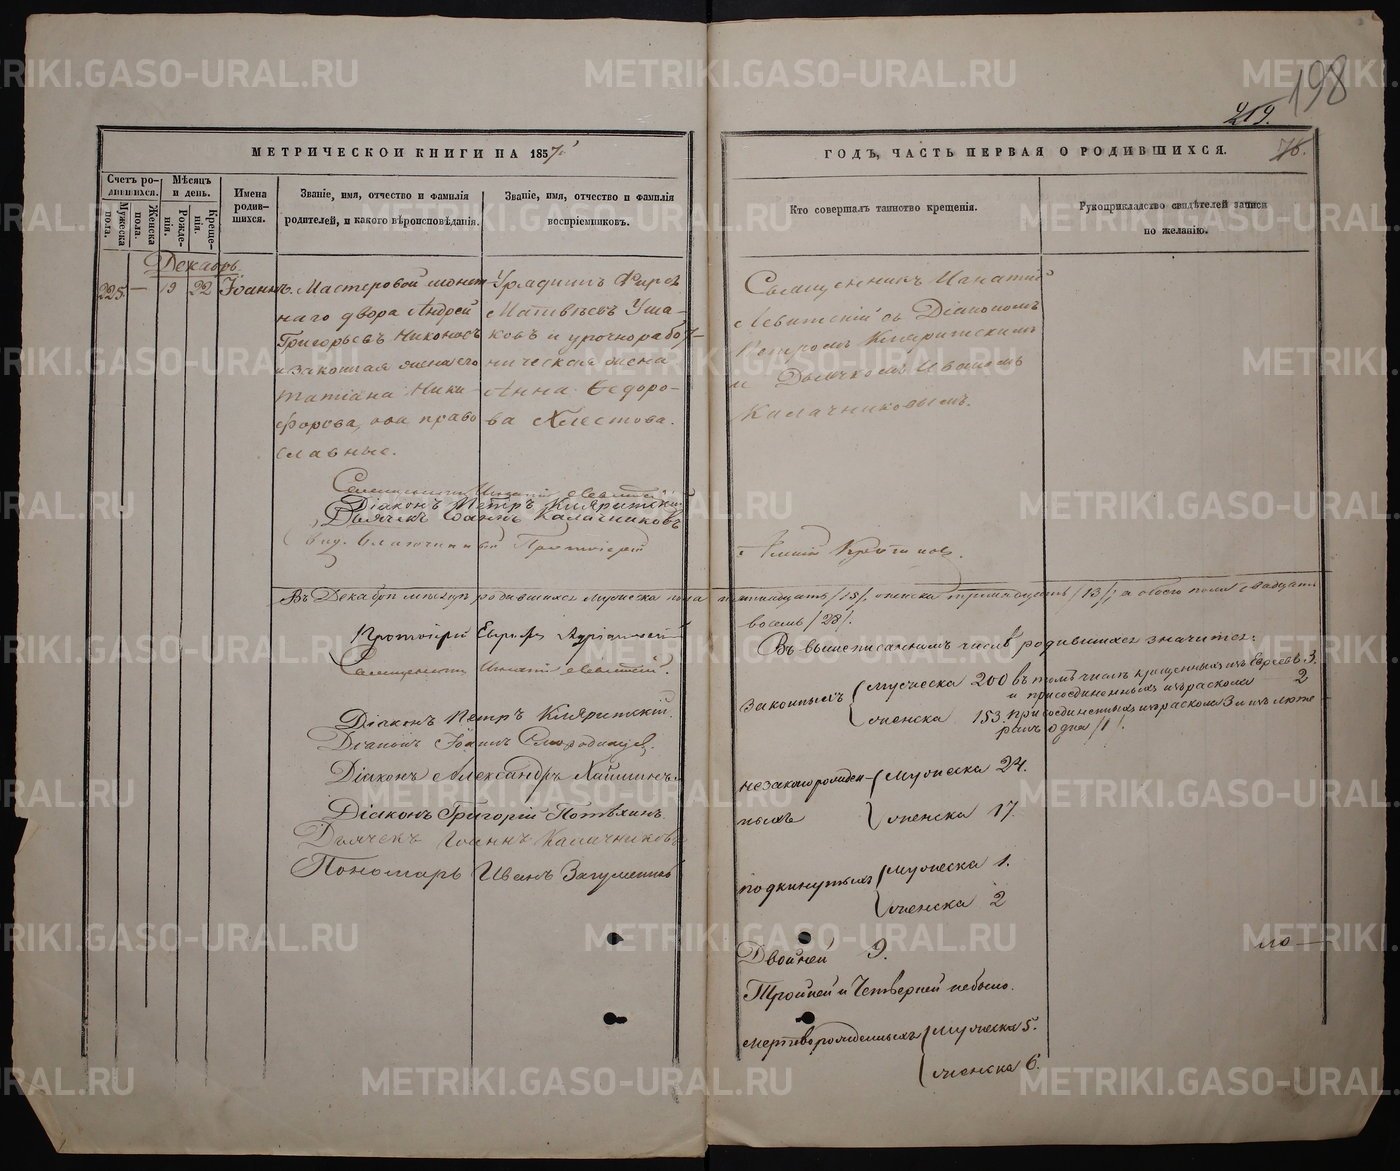 198
219.
МЕТРИЧЕСКОЙ КНИГИ НА 1857й
ГОДЪ, ЧАСТЬ ПЕРВАЯ О РОДИВШИХСЯ.
76.
Счетъ родившихся.
Мужеска пола.
Женска пола.
Мѣсяцъ и день.
Рожденія.
Крещенія.
Имена родившихся.
Званіе, имя, отчество и фамилія
родителей, и какого вѣроисповѣданія.
Званіе, имя, отчество и фамилія
воспріемниковъ.
Кто совершалъ таинство крещенія.
Рукоприкладство свидѣтелей записи
по желанію.
Декабрь.
225. — 22 Іоаннъ.
Мастеровой монет-
наго двора Андрей
Григорьевъ Никоновъ
и законная жена его
Татіана Ники-
форова, оба право
славные.
Урядникъ
Матвѣевъ Уша-
ковъ и урочнорабо-
ническая жена
Анна Ѳедоро-
ва Хлестова.
Священникъ Игнатій
Левитскій съ Діакономъ
Петромъ
и Дьячкомъ Иваномъ
Калачниковымъ.
Священникъ Игнатій Левитскій
Діаконъ Петръ
Дьячекъ Іоаннъ Калачниковъ
Благочинный Протоіерей
Въ Декабрѣ мѣсяцѣ родившихся мужеска пола пятнадцать /15/, женска тринадцать /13/, а обоего пола двадцать
восемь /28/.
Протоіерей
Священникъ Игнатій Левитскій.
Діаконъ Петръ
Діаконъ Іоаннъ Смородинцевъ.
Діаконъ Александръ
Діаконъ Григорій Потѣхинъ.
Дьячекъ Іоаннъ Калачниковъ
Пономарь Иванъ Загуменновъ
Въ вышеписанномъ числѣ родившихся значится:
законныхъ
мужеска 200 въ томъ числѣ крещенныхъ изъ Евреевъ 3.
и присоединенныхъ изъ раскола 2
женска 153. присоединенныхъ изъ раскола 3 и изъ люте
ранъ одна /1/.
незаконорожден-
ныхъ
мужеска 24.
женска 17.
подкинутыхъ
мужеска 1.
женска 2
Двойней 9.
Тройней и Четверней небыло.
мертворожденныхъ
мужеска 5.
женска 6.
METRIKI.GASO-URAL.RU